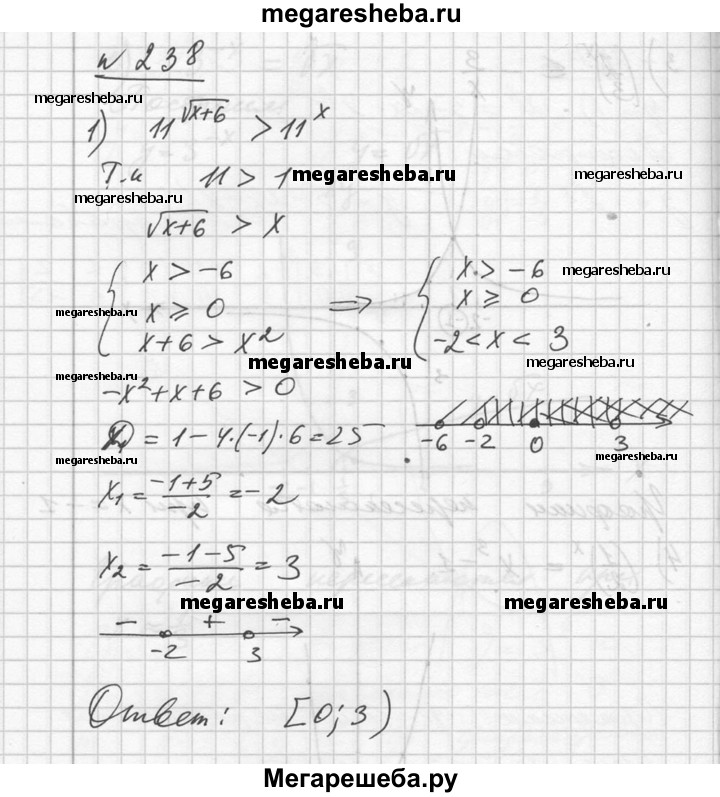 megaresheba.ru
№ 238
megaresheba.ru
1) 11^√(x+6) > 11^x
Т.к 11 > 1
megaresheba.ru megaresheba.ru
megaresheba.ru
√(x+6) > x
{ x > -6
x ⩾ 0
x+6 > x² ⇒ { x > -6
x ⩾ 0
-2 < x < 3
megaresheba.ru
megaresheba.ru
megaresheba.ru
megaresheba.ru
megaresheba.ru
-x²+x+6 > 0
D = 1-4·(-1)·6 = 25
-6 -2 0 3
megaresheba.ru
megaresheba.ru
x₁ = (-1+5)/(-2) = -2
x₂ = (-1-5)/(-2) = 3
megaresheba.ru megaresheba.ru
- + -
-2 3
Ответ: [0; 3)
Мегарешеба.ру